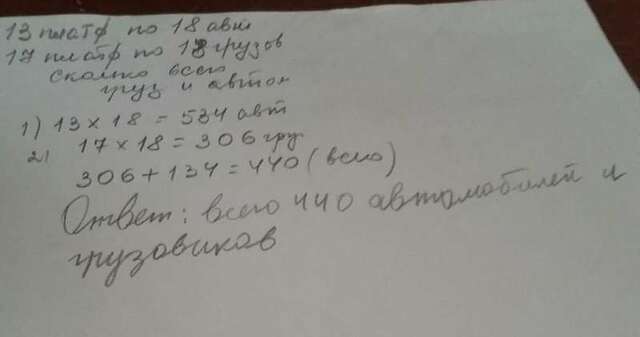 13 платф по 18 авт
17 платф по 18 грузов
сколько всего
груз и автом
1) 13 × 18 = 534 авт
2) 17 × 18 = 306 гру
306 + 134 = 440 (всего)
Ответ: всего 440 автомобилей и
грузовиков